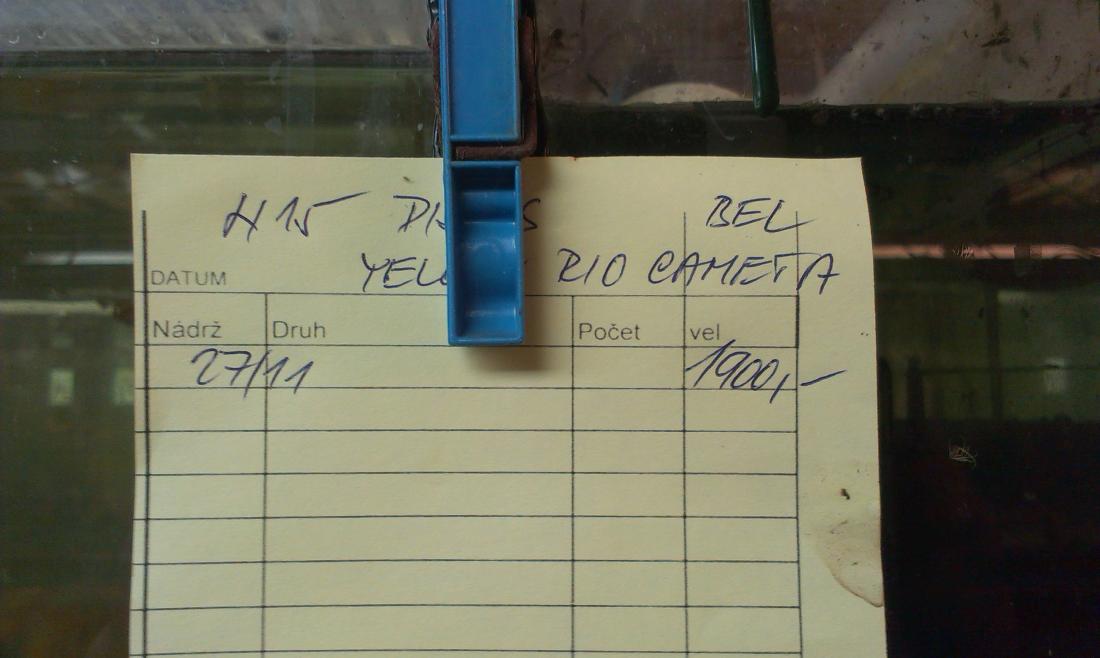 H15 DI S BEL
DATUM YEL RIO CAMETA
Nádrž Druh Počet vel
27/11 1900,-